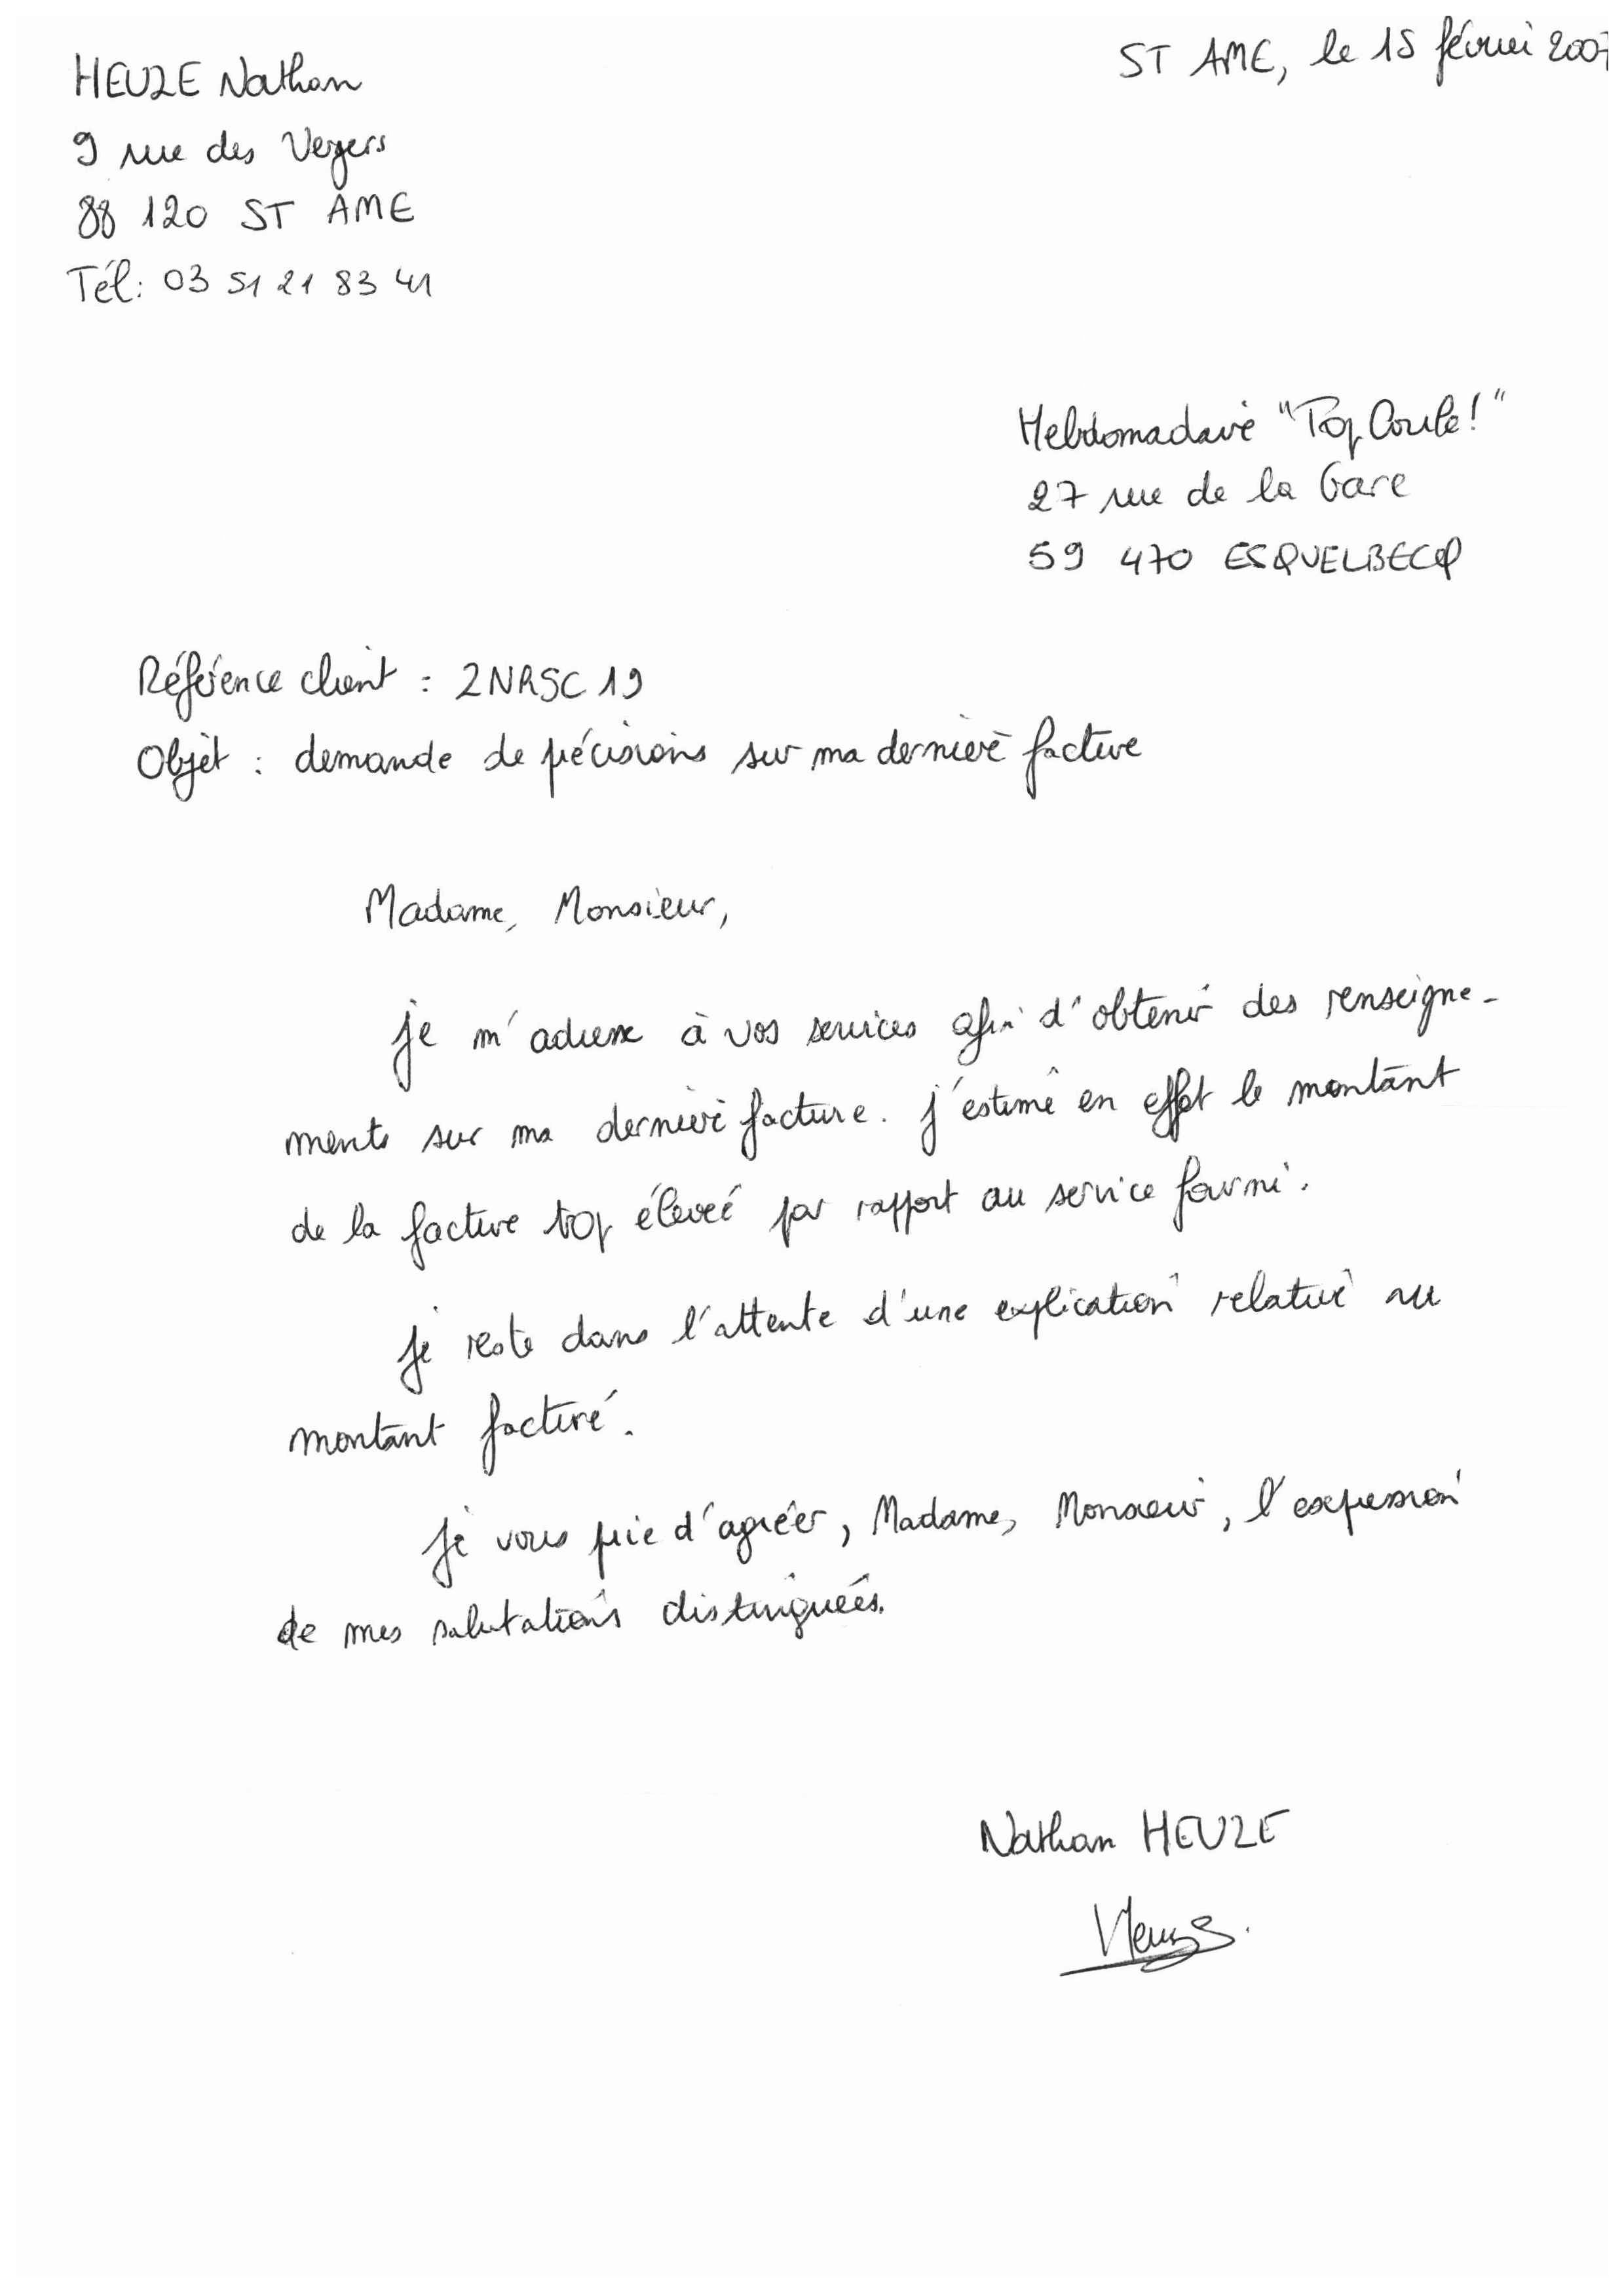 HEUZE Nathan
ST AME, le 15 février 2007
9 rue des Vergers
88 120 ST AME
Tél: 03 51 21 83 41
Hebdomadaire "Top Coule!"
27 rue de la Gare
59 470 ESQUELBECQ
Référence client : 2NRSC19
Objet : demande de précisions sur ma dernière facture
Madame, Monsieur,
je m'adresse à vos services afin d'obtenir des renseigne-
ments sur ma dernière facture. j'estime en effet le montant
de la facture trop élevée par rapport au service fourni.
je reste dans l'attente d'une explication relative au
montant facturé.
Je vous prie d'agréer, Madame, Monsieur, l'expression
de mes salutations distinguées.
Nathan HEUZE
Heuze.